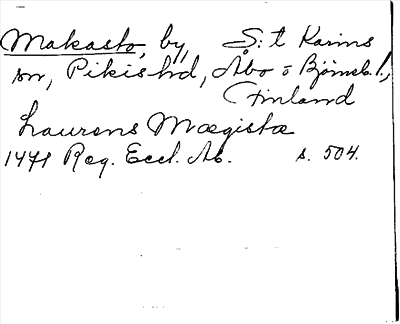 Makasto, by, S:t Karins
sn, Pikis hd, Åbo o Björneb. l.,
Finland
Laurens Mægistæ
1471 Reg. Eccl. Ab. s. 504.